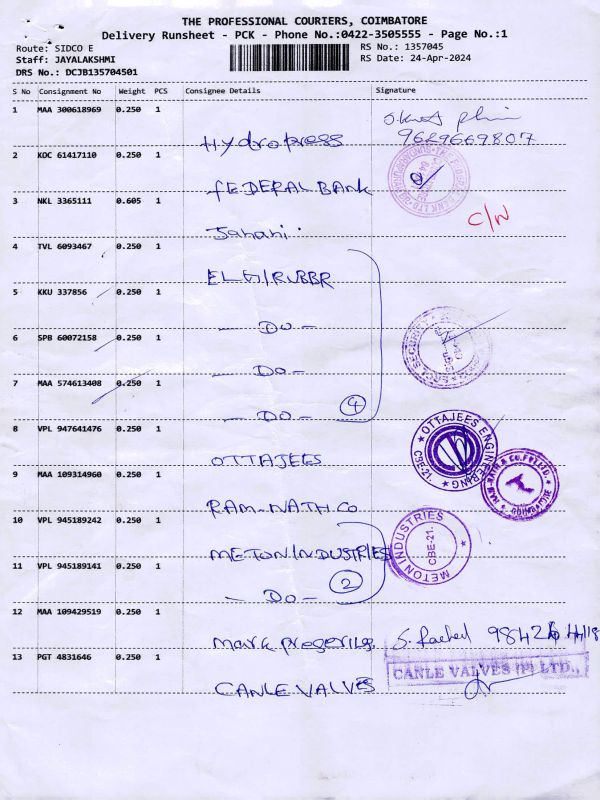 THE PROFESSIONAL COURIERS, COIMBATORE
Delivery Runsheet - PCK - Phone No.:0422-3505555 - Page No.:1
Route: SIDCO E
Staff: JAYALAKSHMI
DRS No.: DCJB135704501
RS No.: 1357045
RS Date: 24-Apr-2024
S No Consignment No Weight PCS Consignee Details Signature
1 MAA 300618969 0.250 1 Hydropress
9629669807
2 KOC 61417110 0.250 1 FEDERAL BANK
3 NKL 3365111 0.605 1 Janani
C/N
4 TVL 6093467 0.250 1 ELGI RUBBR
5 KKU 337856 0.250 1 - Do -
6 SPB 60072158 0.250 1 - Do -
7 MAA 574613408 0.250 1 - Do - 4
8 VPL 947641476 0.250 1 OTTAJEES
OTTAJEES ENGINEERING
CBE-21.
9 MAA 109314960 0.250 1 RAM-NATH.CO
COIMBATORE
10 VPL 945189242 0.250 1 METON INDUSTRIES
METON INDUSTRIES
CBE-21.
11 VPL 945189141 0.250 1 - Do - 2
12 MAA 109429519 0.250 1 Mark
13 PGT 4831646 0.250 1 CANLE VALVES
CANLE VALVES (P) LTD.,